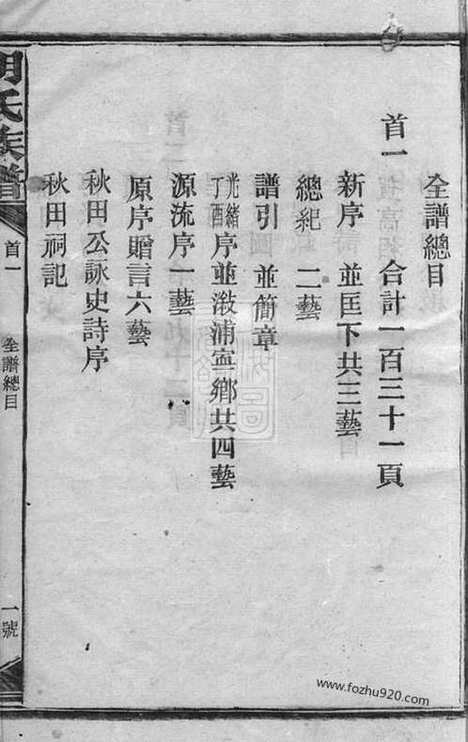 全譜總目
首一 合計一百三十一頁
新序 並匡下共三藝
總紀 二藝
譜引 並簡章
光緒丁酉序並漵浦寧鄉共四藝
源流序一藝
原序贈言六藝
秋田公詠史詩序
秋田祠記
胡氏族譜
首一
全譜總目
一號
www.fozhu920.com